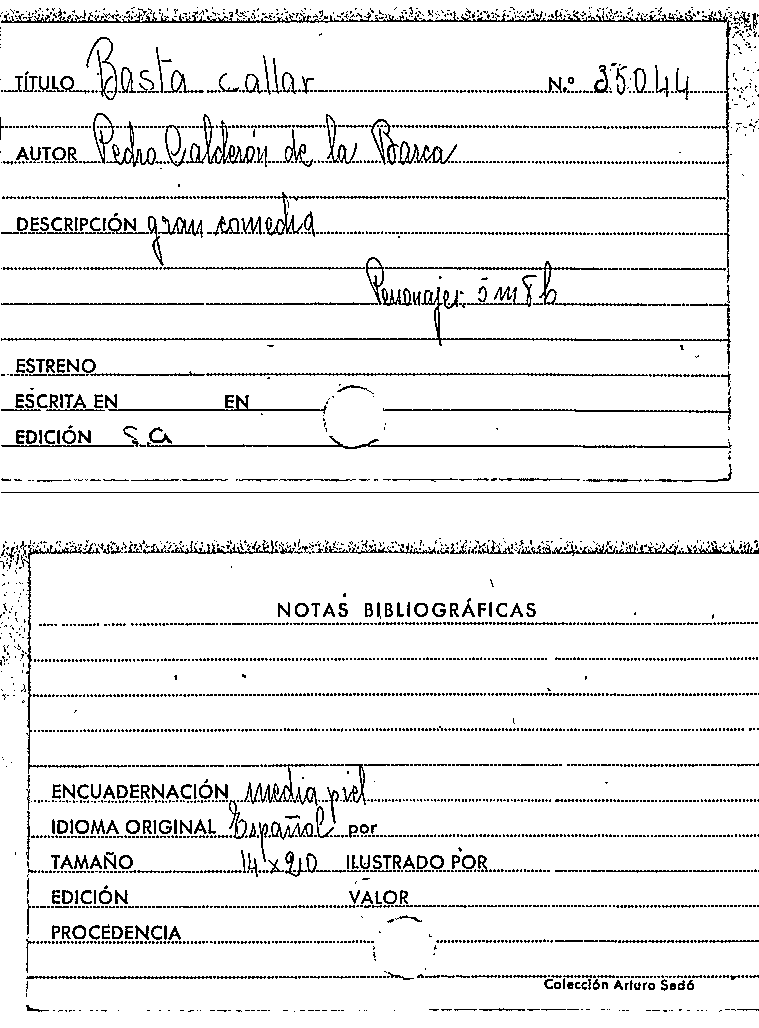 TÍTULO Basta callar N.º 35044
AUTOR Pedro Calderón de la Barca
DESCRIPCIÓN gran comedia
Personajes: 5 m 8 h
ESTRENO
ESCRITA EN EN
EDICIÓN S.a
NOTAS BIBLIOGRÁFICAS
ENCUADERNACIÓN media piel
IDIOMA ORIGINAL Español por
TAMAÑO 14 x 20 ILUSTRADO POR
EDICIÓN VALOR
PROCEDENCIA
Colección Arturo Sedó